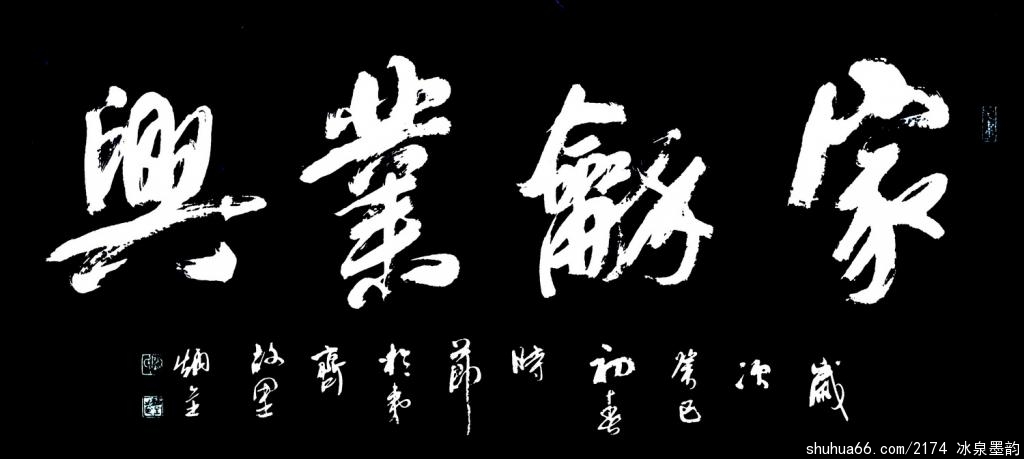 家龢業興
歲次癸巳初春時節於夷齊故里
shuhua66.com/2174 冰泉墨韵